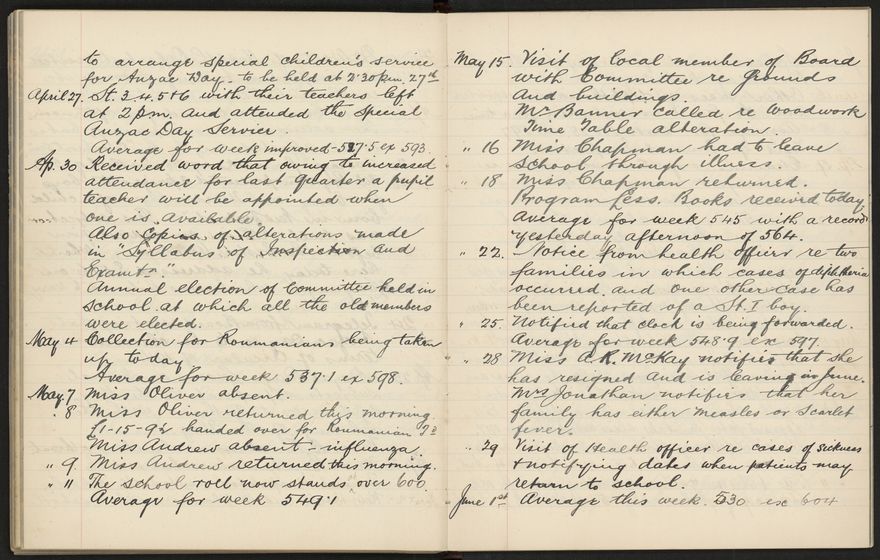 to arrange special children's service
for Anzac Day - to be held at 2.30 p.m. 27th
April 27. St. 3.4.5+6 with their teachers left
at 2 p.m. and attended the special
Anzac Day Service.
Average for week improved - 527.5 ex 593.
Ap. 30 Received word that owing to increased
attendance for last quarter a pupil
teacher will be appointed when
one is available
Also copies of alterations made
in "Syllabus of Inspection and
Examtn."
Annual election of Committee held in
school at which all the old members
were elected.
May 4 Collection for Roumanians being taken
up to day
Average for week 537.1 ex 598.
May. 7 Miss Oliver absent.
" 8 Miss Oliver returned this morning.
£1-15-9½ handed over for Roumanian
Miss Andrew absent - influenza
" 9 Miss Andrew returned this morning.
" 11 The school roll now stands over 600.
Average for week 549.1
May 15. Visit of local member of Board
with Committee re grounds
and buildings.
Mr Banner called re Woodwork
Time Table alteration.
" 16 Miss Chapman had to leave
school through illness.
" 18 Miss Chapman returned.
Program Less. Books received today.
Average for week 545 with a record
yesterday afternoon of 564.
" 22. Notice from health officer re two
families in which cases of diphtheria
occurred and one other case has
been reported of a St. I boy.
" 25. Notified that clock is being forwarded.
Average for week 548.9 ex 597.
" 28 Miss A.R. McKay notifies that she
has resigned and is leaving in June.
Mrs Jonathan notifies that her
family has either measles or scarlet
fever.
" 29 Visit of Health officer re cases of sickness
+ notifying dates when patients may
return to school.
June 1st Average this week. 530 ex 604